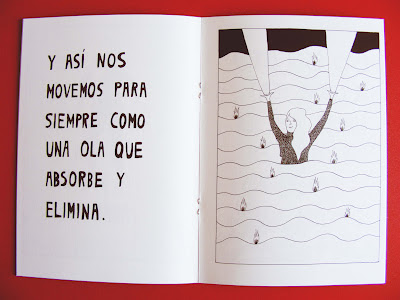 Y ASÍ NOS
MOVEMOS PARA
SIEMPRE COMO
UNA OLA QUE
ABSORBE Y
ELIMINA.